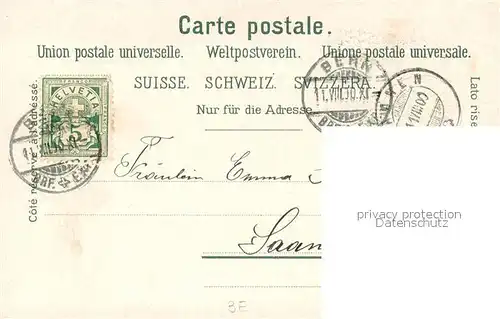 Carte postale.
Union postale universelle. Weltpostverein. Unione postale universale.
SUISSE. SCHWEIZ. SVIZZERA.
Nur für die Adresse.
Côté réservé à l'adresse.
Lato rise
HELVETIA
5
BERN
BRF.
Fräulein Emma
Saan
privacy protection
Datenschutz
3E